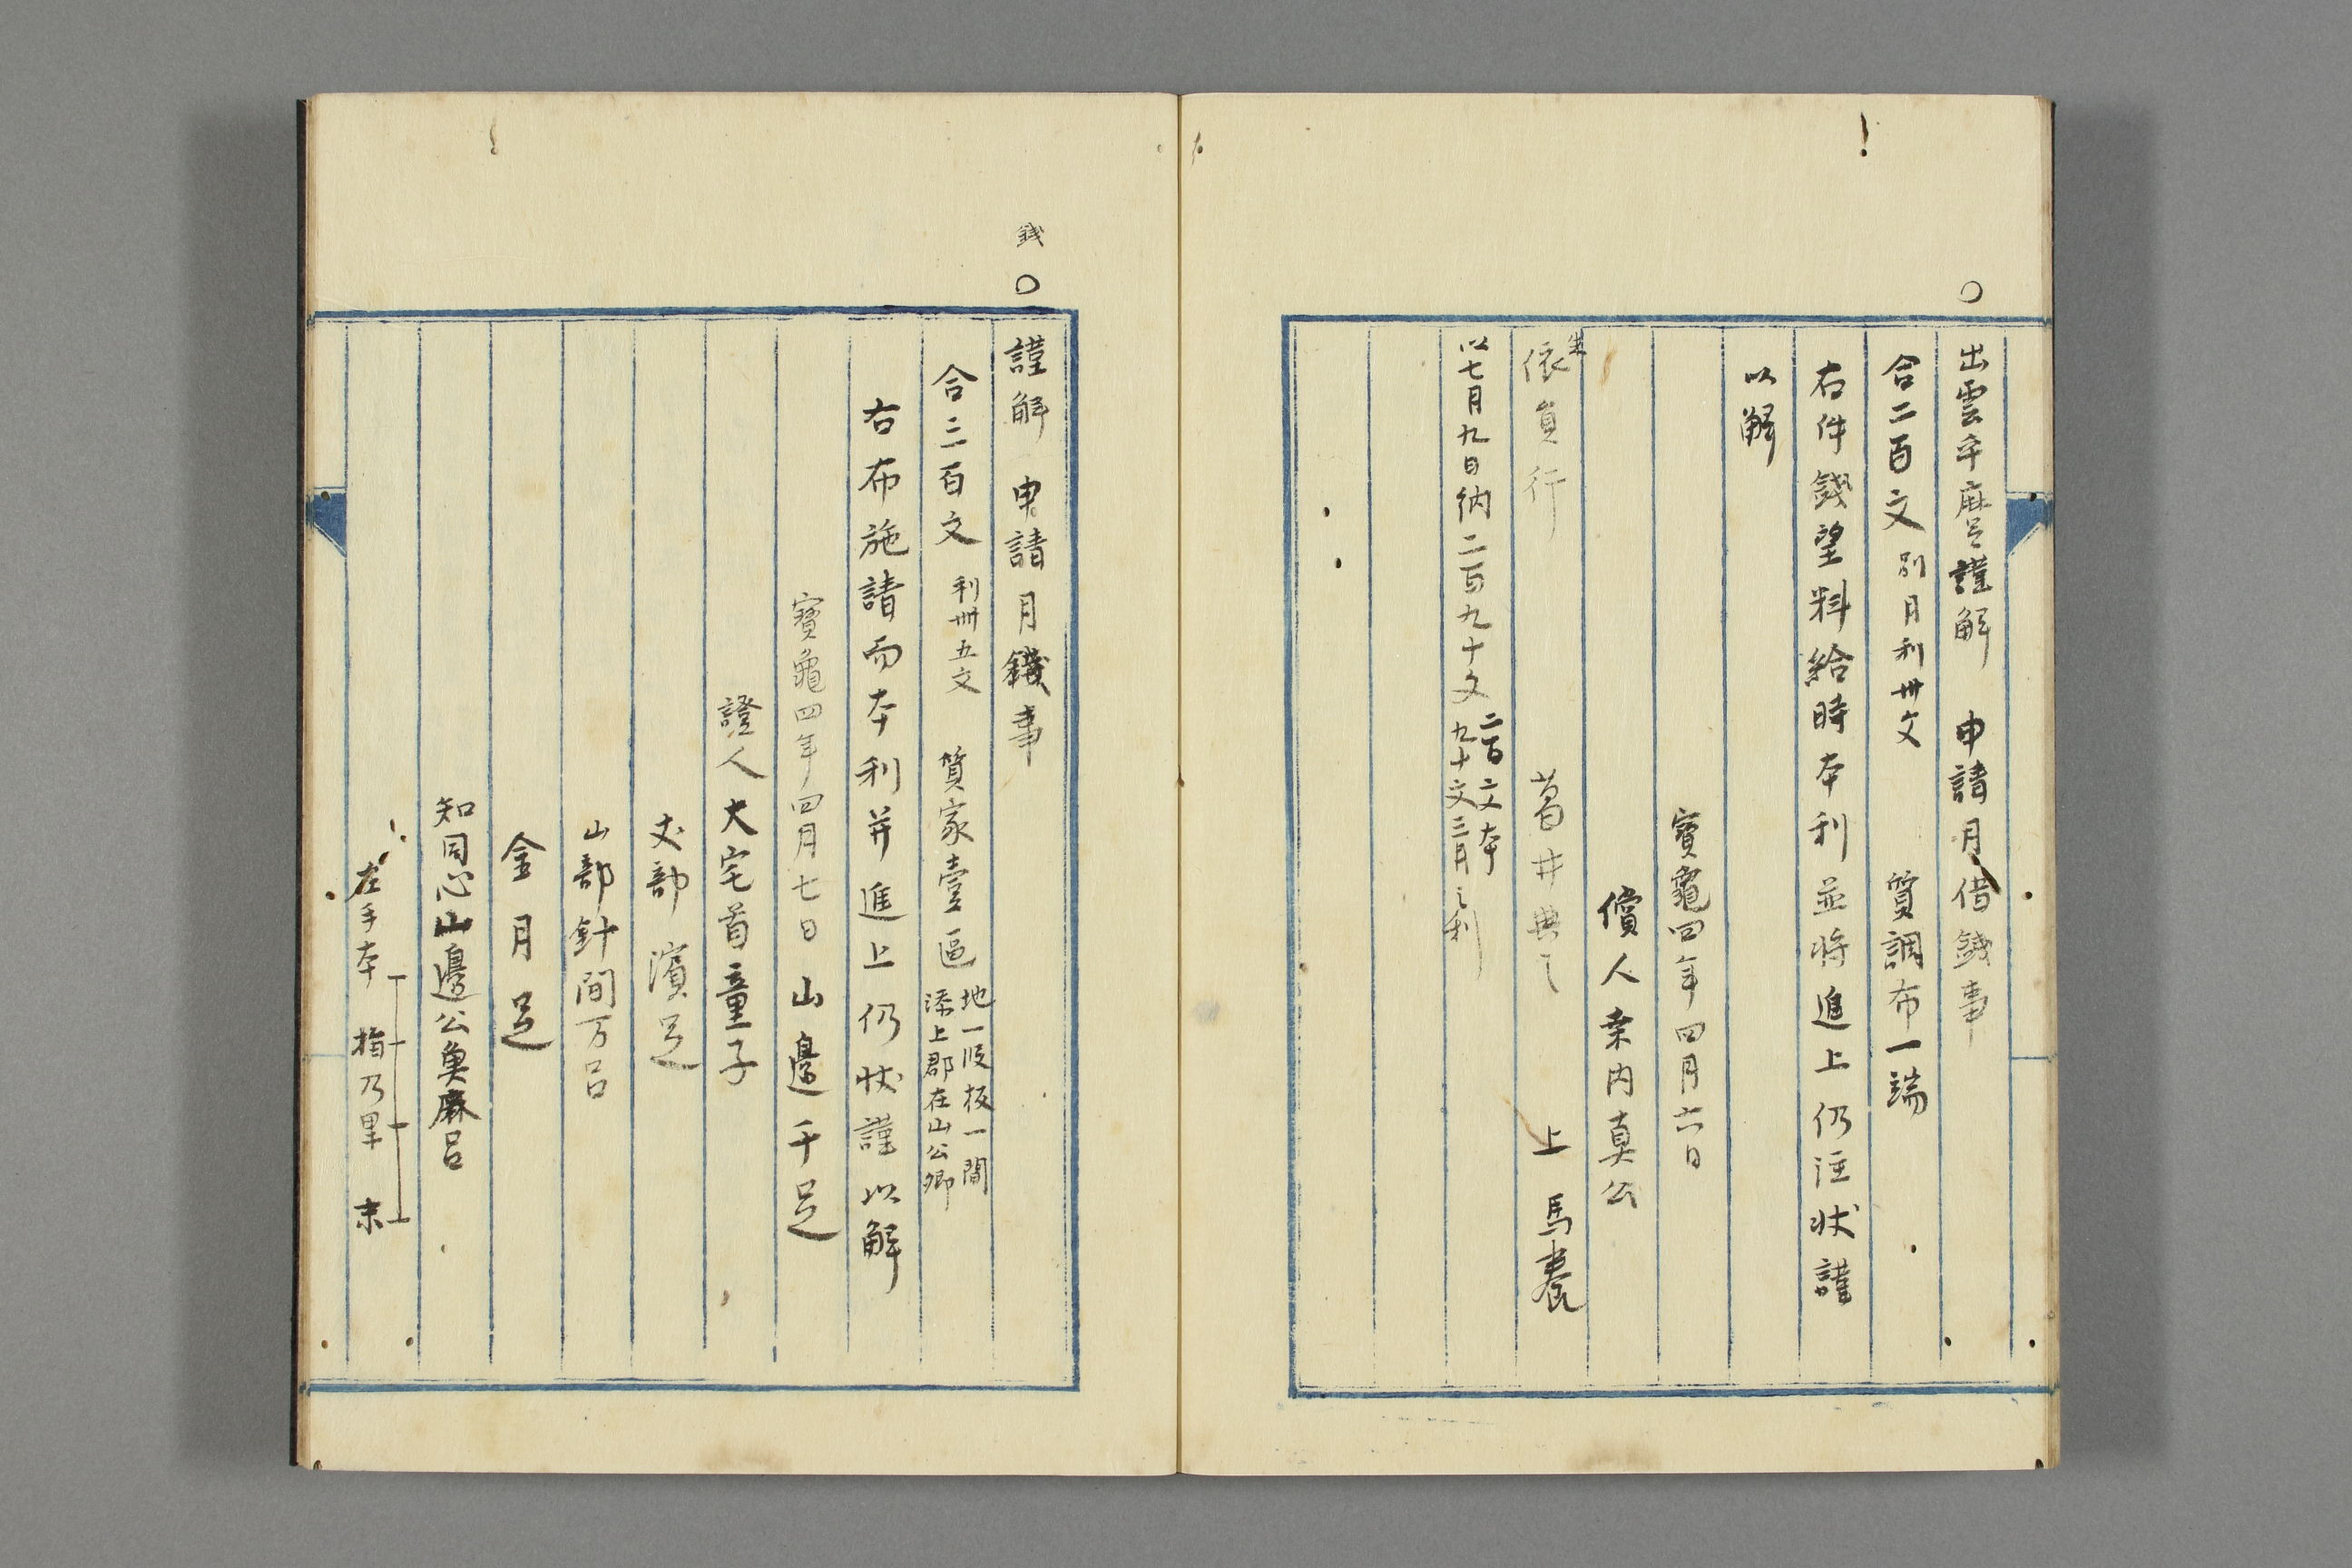 ○
出雲乎麿謹解 申請月借錢事
合二百文 別月利卅文 質調布一端
右件錢望料給時本利並将進上仍注状謹
以解
寶龜四年四月六日
償人桒内真公
依員行 葛井典 上馬養
以七月九日納二百九十文 二百文本
九十文三月之利
錢
○
謹解 申請月錢事
合三百文 利卌五文 質家壹區 地一段板一間
添上郡在山公郷
右布施請而本利并進上仍状謹以解
寶龜四年四月七日山邊千足
證人大宅首童子
丈部濱足
山部針間万呂
金月足
知同心山邊公魚麻呂
左手本 指乃里 末